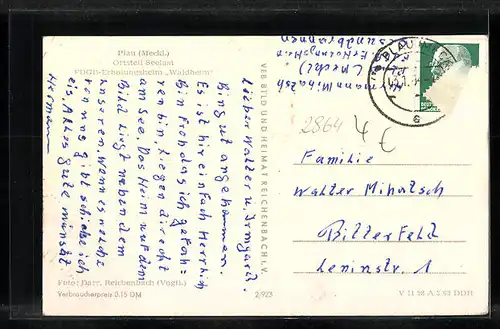 Plau (Meckl.)
Ortsteil Seelust
FDGB-Erholungsheim „Waldheim"
Lieber Walter u Irmgard.
Bin gut angekommen.
Es ist hier einfach Herrlich
Bin Froh das ich gefah-
ren bin. Liegen direckt
am See. Das Heim auf dem
Bild liegt neben dem
unseren. Wenn es welche
von uns gibt schicke ich
sie. Alles Gute münscht
Hermann
Foto: Darr, Reichenbach (Vogtl.)
Verbraucherpreis 0,15 DM
VEB BILD UND HEIMAT REICHENBACH I. V.
2/923
(Meckl)
PLAU
c
2864
4 €
Familie
Walter Mihatsch
Bitterfeld
Leninstr. 1
V 11 28 A 2 63 DDR